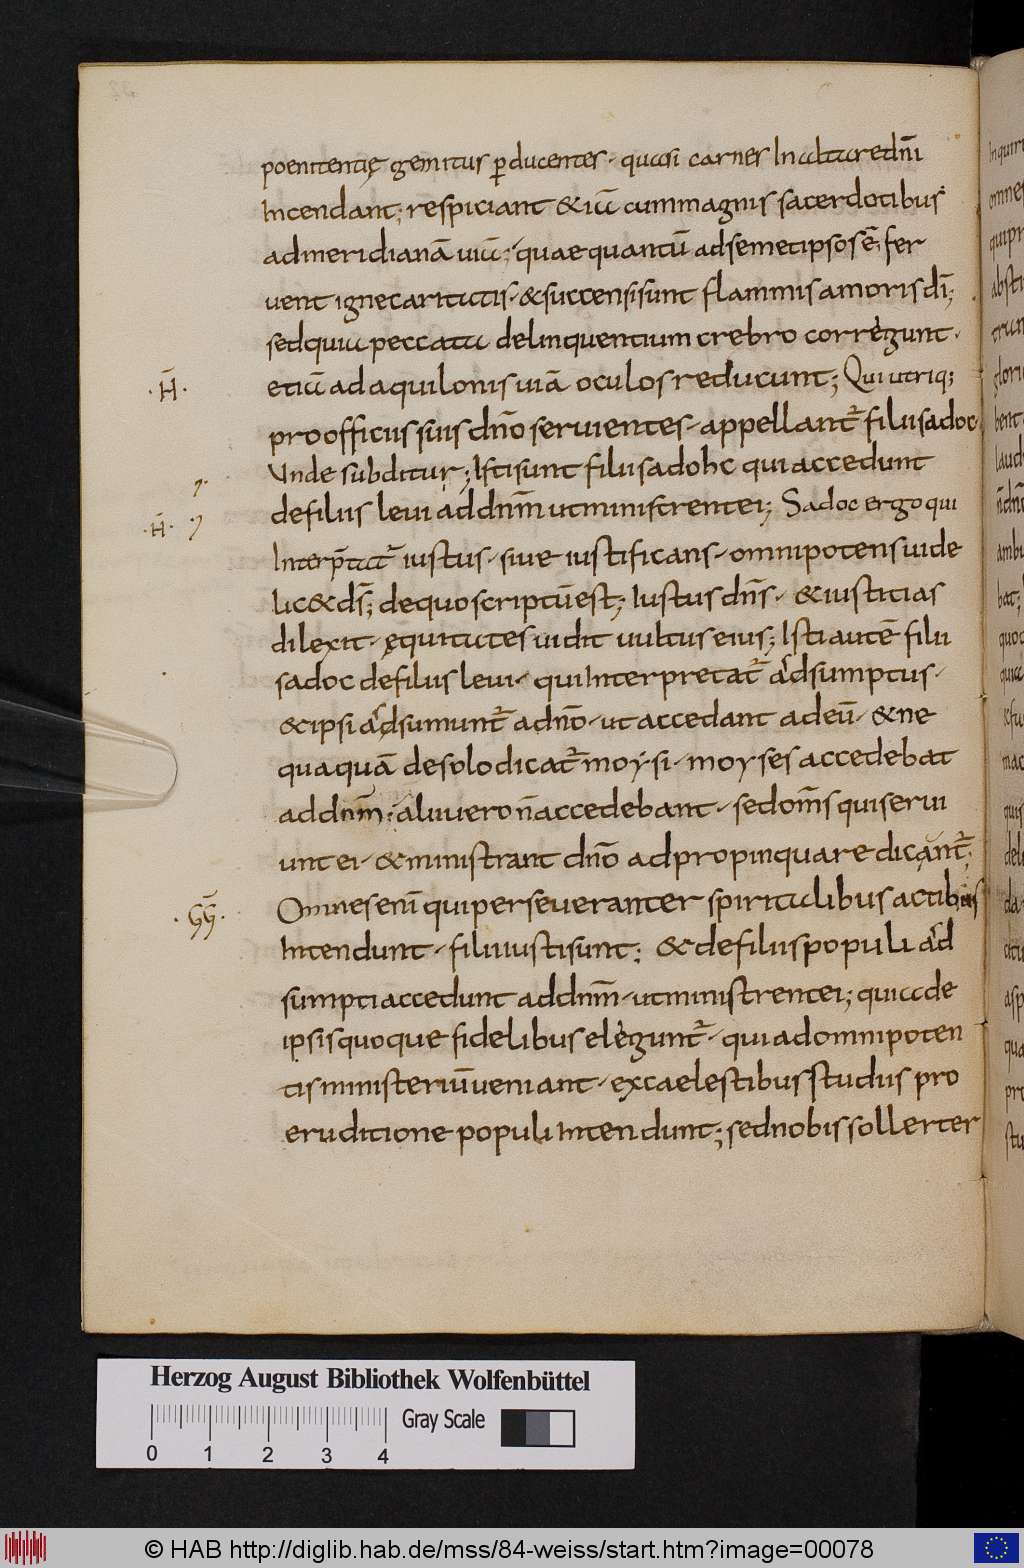 poenitentię gemitus ꝑducentes · quasi carnes In altare dn̄i
Incendant; respiciant & iā cum magnis sacerdotibus
ad meridianā uiā; quae quantū ad semetipsos ē; fer
uent igne caritatis · & succensi sunt flammis amoris dī;
sed quia peccata delinquentium crebro corrègunt ·
·H̄· etiā ad aquilonis uiā oculos reducunt; Qui utriq;
pro officiis suis dn̄o seruientes · appellant᷑ filii sadoc
Unde subditur; Isti sunt filii sadohc qui accedunt
·H̄· de filiis leui ad dnm̄ ut ministrent ei; Sadoc ergo qui
Interp̄tat᷑ iustus · siue iustificans · omnipotens uide
lic& ds̄; de quo scriptū est; Iustus dn̄s · & iustitias
dilexit · ęquitates uidit uultus eius; Isti autē filii
sadoc de filiis leui · qui Interpretat᷑ adsumptus ·
& ipsi adsumunt᷑ a dn̄o · ut accedant ad eū · & ne
quaquā de solo dicat᷑ moysi · moyses accedebat
ad dnm̄; alii uero n̄ accedebant · sed om̄s qui serui
unt ei · & ministrant dn̄o adpropinquare dicant᷑;
·GḠ· Omnes enī qui perseueranter spiritalibus actibus
Intendunt · filii iusti sunt; & de filiis populi ad
sumpti accedunt ad dnm̄ · ut ministrent ei; quia de
ipsis quoque fidelibus elègunt᷑ · qui ad omnipoten
tis ministeriū ueniant · ex caelestibus studiis pro
eruditione populi Intendunt; sed nobis sollerter
Herzog August Bibliothek Wolfenbüttel
Gray Scale
0 1 2 3 4
© HAB http://diglib.hab.de/mss/84-weiss/start.htm?image=00078